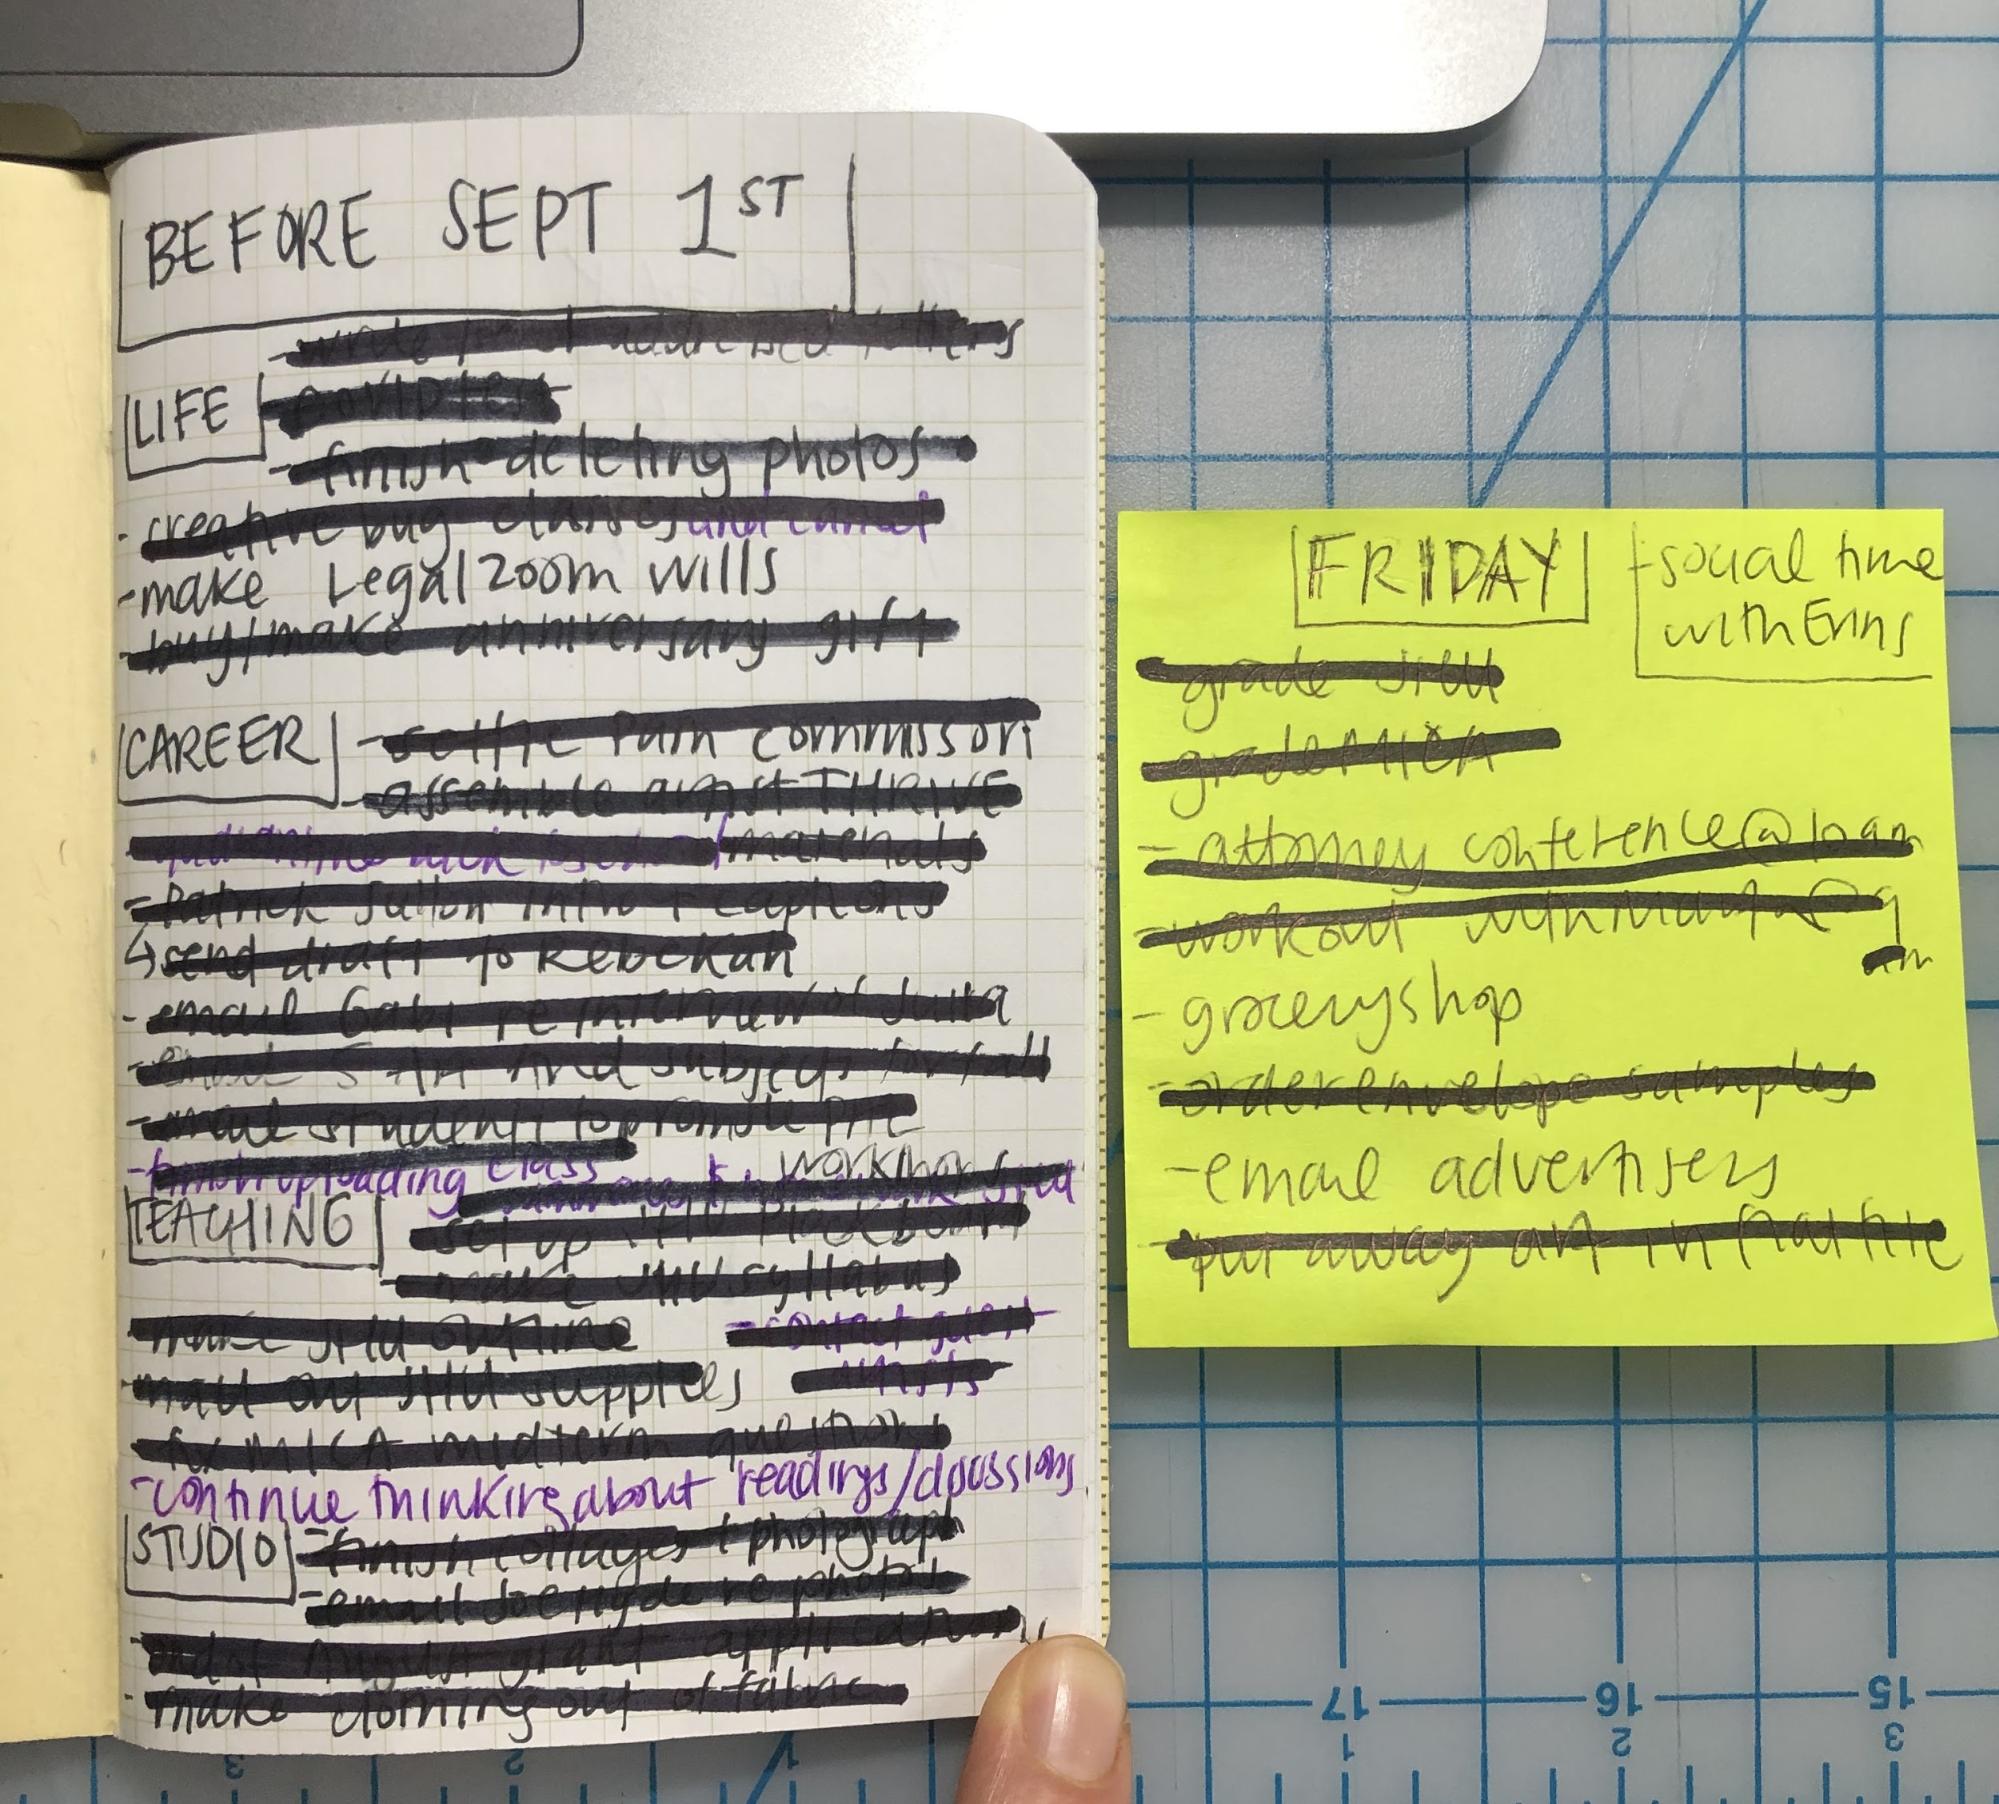 BEFORE SEPT 1ST
LIFE
- finish deleting photos
- creative bug classes and cancel
- make Legal Zoom wills
- buy/make anniversary gift
CAREER
- settle Pam commission
- assemble artist THRIVE
materials
- Patrick intro + captions
↳ send draft to Rebekah
- email Gabi re interview of
- email subjects for fall
- email students to promote
- finish uploading class
TEACHING
- set up JHU Blackboard
- make JHU syllabus
- make JHU outline
- contact guest
artists
- mail out JHU supplies
- fix MICA midterm questions
- continue thinking about readings/discussions
STUDIO
- finish collages + photograph
- email Joe Hyde re photos
- end of August grant applications
- make clothing out of fabric
FRIDAY
- social time
with Erins
- grade JHU
- grade MICA
- attorney conference @ 10am
- workout with @ 9
am
- grocery shop
- order envelope samples
- email advertisers
- put away art in flat file
17
16
15
1
2
3
3
2
1